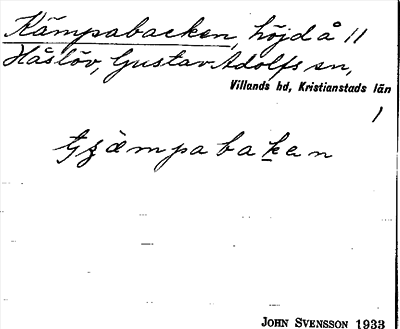 Kämpabacken, höjd å 11
Håslöv, Gustav Adolfs sn,
Villands hd, Kristianstads län
1
ba ken
JOHN SVENSSON 1933